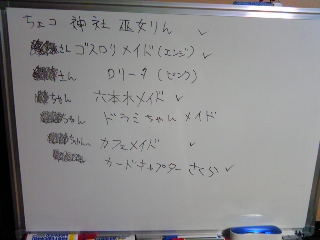 チェコ 神社 巫女りん ✓
さん ゴスロリメイド(エンジ) ✓
さん ロリータ(ピンク)
ちゃん 六本木メイド ✓
ちゃん ドラミちゃんメイド
ちゃん カフェメイド ✓
カードキャプターさくら ✓